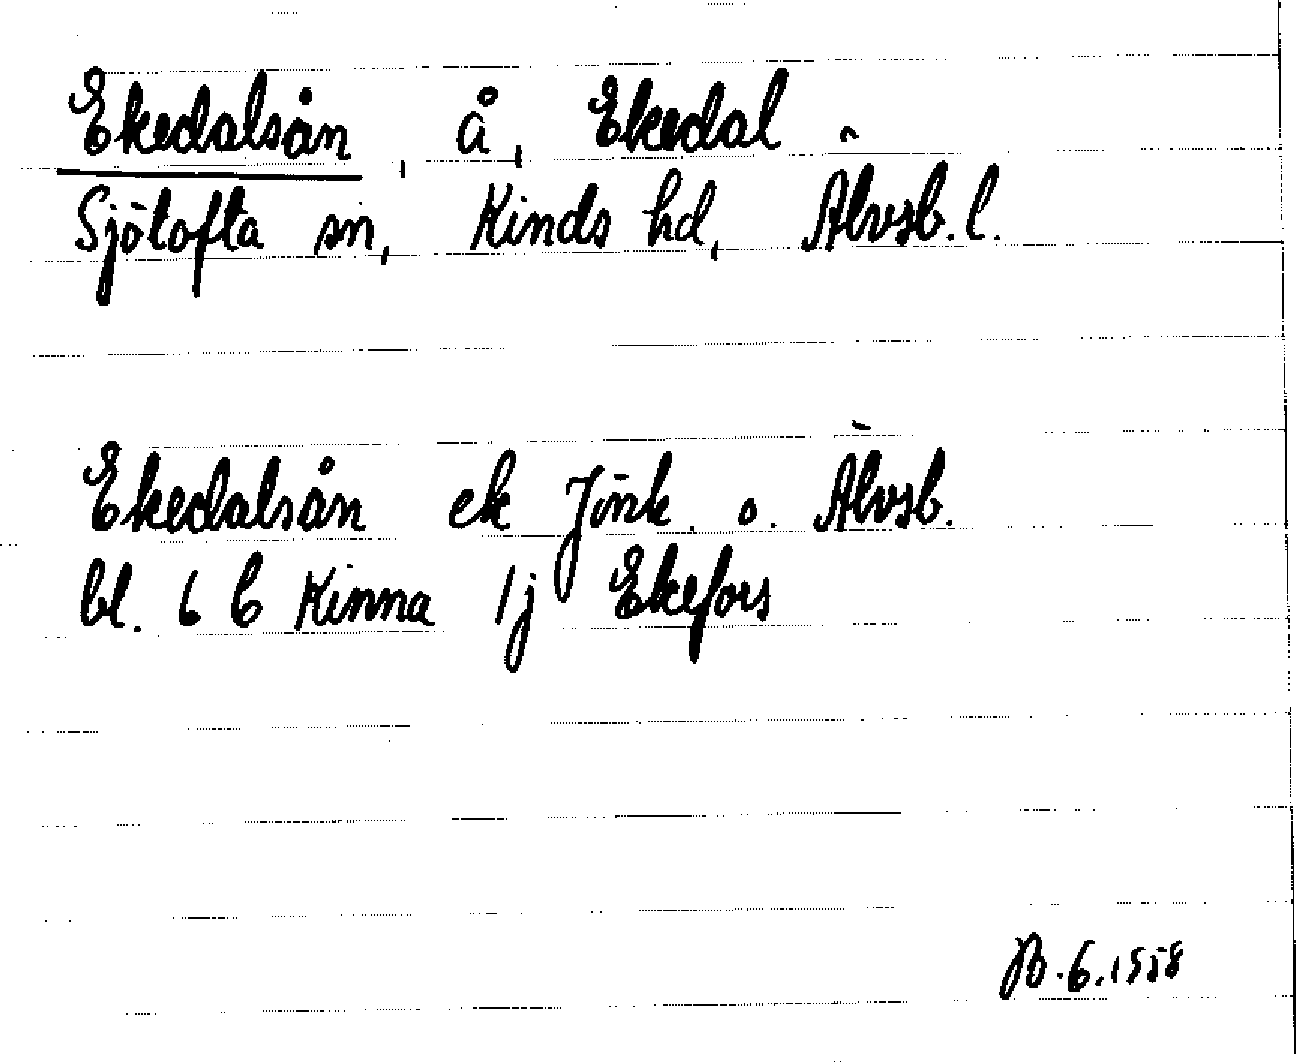 Ekedalsån, å, Ekedal
Sjötofta sn, Kinds hd, Älvsb. l.
Ekedalsån ek Jönk. o. Älvsb.
bl. 6 C Kinna 1j Ekefors
6.1958